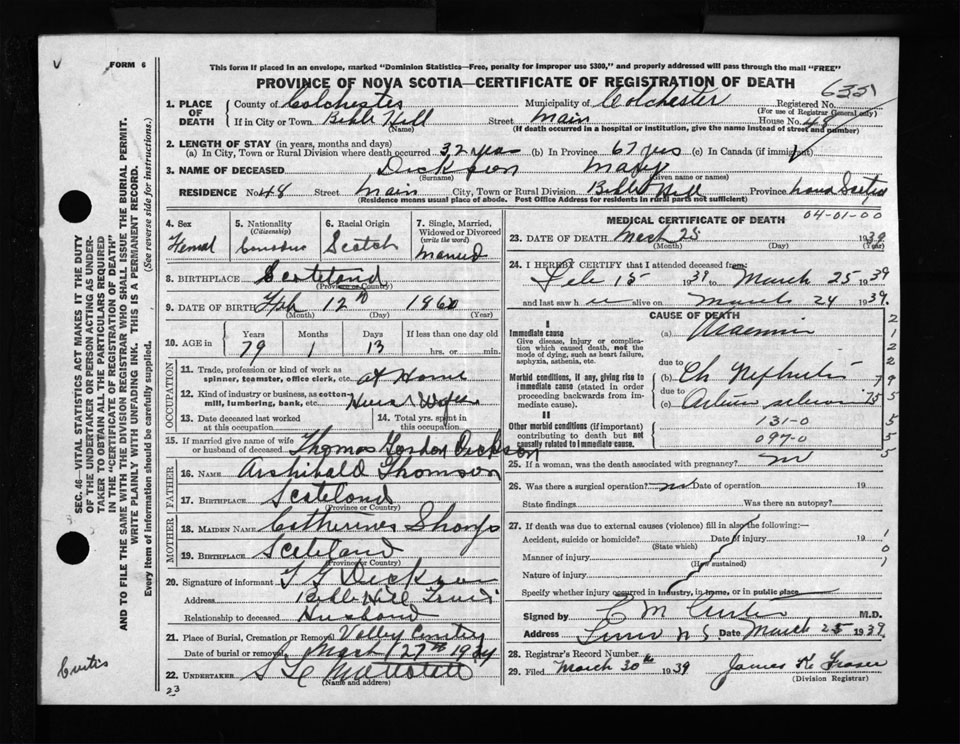 FORM 6
This form if placed in an envelope, marked "Dominion Statistics—Free, penalty for improper use $300," and properly addressed will pass through the mail "FREE"
PROVINCE OF NOVA SCOTIA—CERTIFICATE OF REGISTRATION OF DEATH
1. PLACE OF DEATH
County of Colchester Municipality of Colchester Registered No. 6321
(For use of Registrar General only)
If in City or Town Bible Hill Street Main House No. 48
(Name) (If death occurred in a hospital or institution, give the name instead of street and number)
2. LENGTH OF STAY (in years, months and days)
(a) In City, Town or Rural Division where death occurred 32 yrs (b) In Province 67 yrs (c) In Canada (if immigrant)
3. NAME OF DECEASED Dickson Mary
(Surname) (Given name or names)
RESIDENCE No. 48 Street Main City, Town or Rural Division Bible Hill Province Nova Scotia
(Residence means usual place of abode. Post Office Address for residents in rural parts not sufficient)
4. Sex Femal
5. Nationality (Citizenship)
6. Racial Origin Scotch
7. Single, Married, Widowed or Divorced (write the word) Married
8. BIRTHPLACE Scoteland
(Province or Country)
9. DATE OF BIRTH 12th 1860
(Month) (Day) (Year)
10. AGE in Years Months Days If less than one day old
79 1 13 hrs. or min.
OCCUPATION
11. Trade, profession or kind of work as spinner, teamster, office clerk, etc. at Home
12. Kind of industry or business, as cotton-mill, lumbering, bank, etc.
13. Date deceased last worked at this occupation
14. Total yrs. spent in this occupation
15. If married give name of wife or husband of deceased Thomas Gordon Dickson
FATHER
16. NAME Archibald Thomson
17. BIRTHPLACE Scoteland
(Province or Country)
MOTHER
18. MAIDEN NAME Catherines Sharp
19. BIRTHPLACE Scoteland
(Province or Country)
20. Signature of informant T G Dickson
Address Bible Hill Truro
Relationship to deceased Husband
21. Place of Burial, Cremation or Removal
Date of burial or removal 27th
22. UNDERTAKER
(Name and address)
MEDICAL CERTIFICATE OF DEATH
04-01-00
23. DATE OF DEATH March 25 1939
(Month) (Day) (Year)
24. I HEREBY CERTIFY that I attended deceased from:
Feb 15 39 to March 25 1939
and last saw h alive on March 24 1939.
CAUSE OF DEATH
I
Immediate cause
Give disease, injury or complication which caused death, not the mode of dying, such as heart failure, asphyxia, asthenia, etc.
(a) Uraemia
due to
Morbid conditions, if any, giving rise to immediate cause (stated in order proceeding backwards from immediate cause).
(b) Ch Nephritis
due to
(c)
II
Other morbid conditions (if important) contributing to death but not causally related to immediate cause.
131-0
097-0
25. If a woman, was the death associated with pregnancy? no
26. Was there a surgical operation? no Date of operation 19
State findings Was there an autopsy?
27. If death was due to external causes (violence) fill in also the following:—
Accident, suicide or homicide? Date of injury 19
(State which)
Manner of injury
(How sustained)
Nature of injury
Specify whether injury occurred in industry, in home, or in public place
Signed by E M Curtis M.D.
Address Truro N S. Date March 25 1939.
28. Registrar's Record Number
29. Filed March 30th 1939 James K Fraser
(Division Registrar)
SEC. 46—VITAL STATISTICS ACT MAKES IT THE DUTY OF THE UNDERTAKER OR PERSON ACTING AS UNDERTAKER TO OBTAIN ALL THE PARTICULARS REQUIRED IN THE "CERTIFICATE OF REGISTRATION OF DEATH" AND TO FILE THE SAME WITH THE DIVISION REGISTRAR WHO SHALL ISSUE THE BURIAL PERMIT.
(See reverse side for instructions.)
WRITE PLAINLY WITH UNFADING INK. THIS IS A PERMANENT RECORD.
Every item of information should be carefully supplied.
Curtis
23